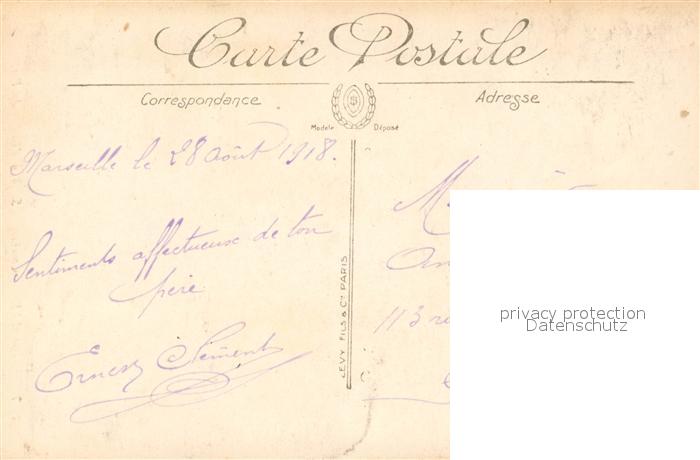 Carte Postale
Correspondance
Adresse
Modèle Déposé
Marseille le 28 Août 1918.
Sentiments affectueux de ton
père
Ernest
LEVY FILS & Cie PARIS
M
An
113
privacy protection
Datenschutz